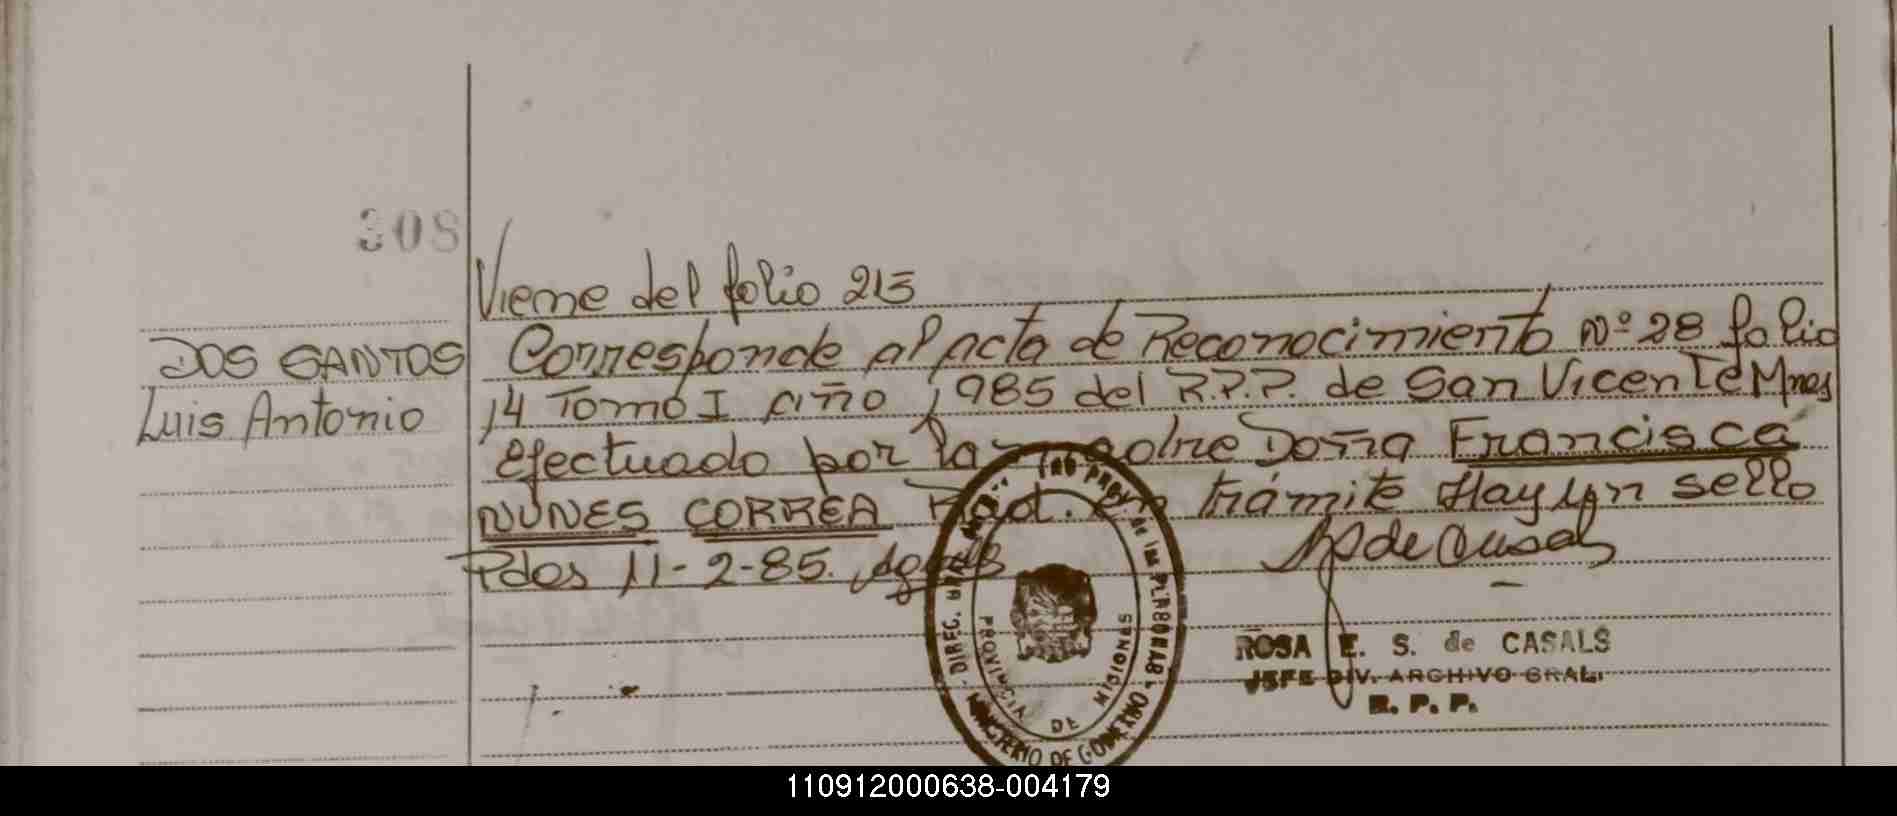 308
Viene del folio 215
DOS SANTOS
Luis Antonio
Corresponde al acta de Reconocimiento Nº 28 folio
14 Tomo I año 1985 del R.P.P. de San Vicente Mnes
efectuado por la madre Doña Francisca
NUNES CORREA Rad. en trámite Hay un sello
Pdos 11-2-85.
DIREC. GRAL. PROV. de las PERSONAS
PROVINCIA DE MISIONES
MINISTERIO DE GOBIERNO
ROSA E. S. de CASALS
JEFE DIV. ARCHIVO GRAL.
R. P. P.
110912000638-004179